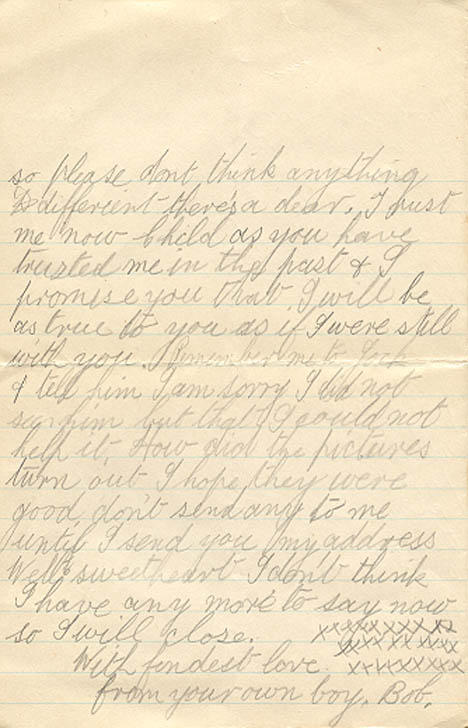 so please dont think anything
different there's a dear. Trust
me now Child as you have
trusted me in the past & I
promise you that I will be
as true to you as if I were still
with you. Remember me to Jock
& tell him I am sorry I did not
see him but that I could not
help it. How did the pictures
turn out I hope they were
good, don't send any to me
until I send you my address
Well sweetheart I don't think
I have any more to say now
so I will close. xxxxxxxx
With fondest love. xxxxxxxx
xxxxxxxx
from your own boy. Bob.